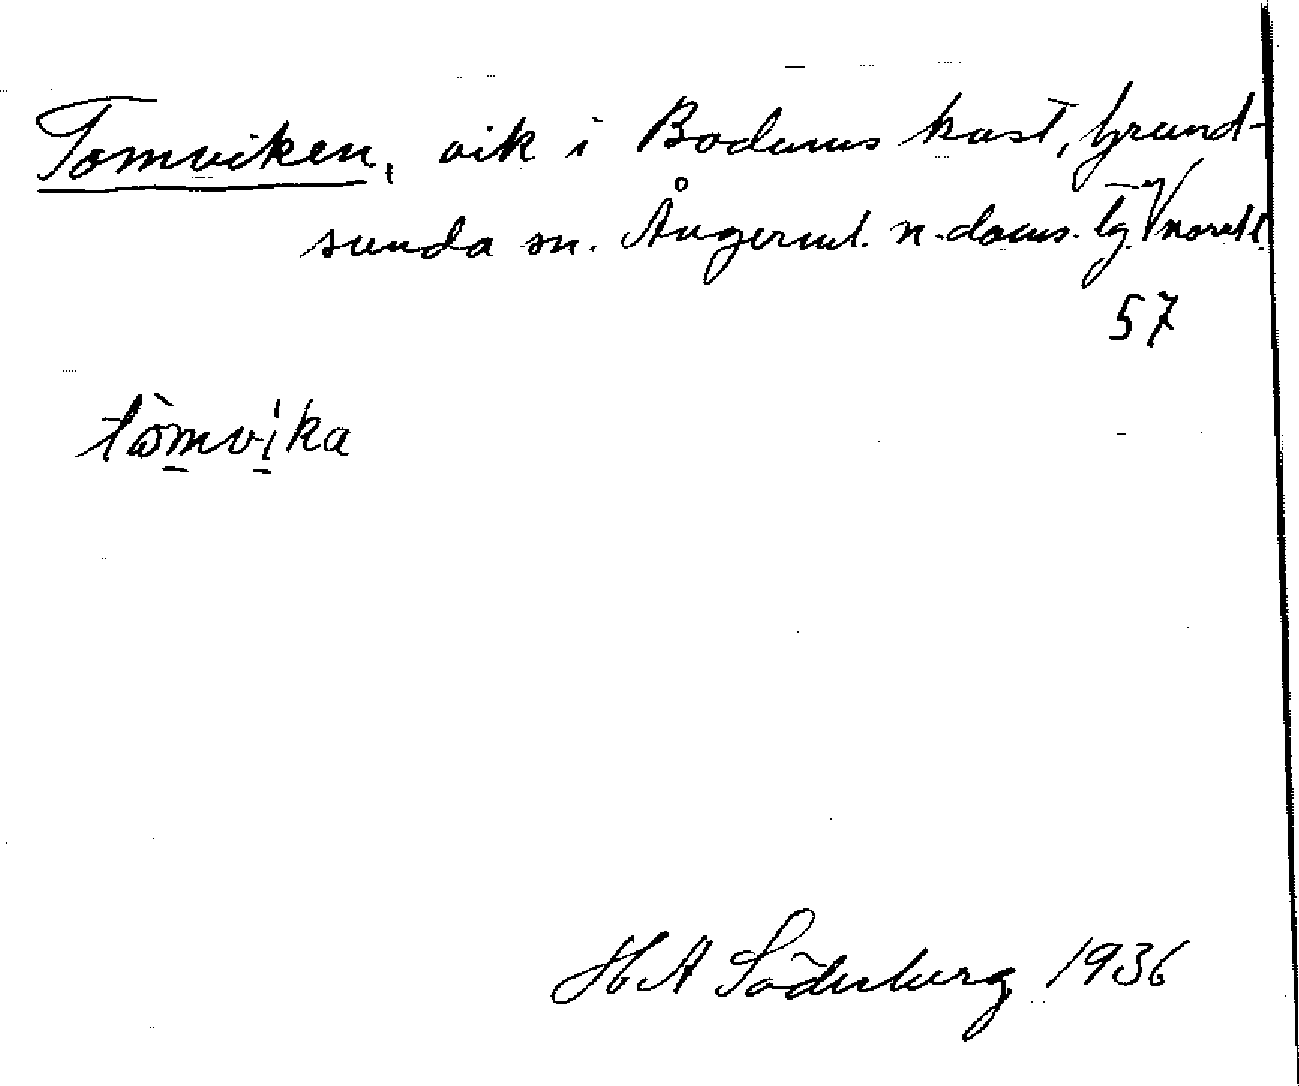 Tomviken, vik i Bodums kust, Grund-
sunda sn. Ångerml. n. doms. tg.
57
tòmvika
H A Söderberg 1936